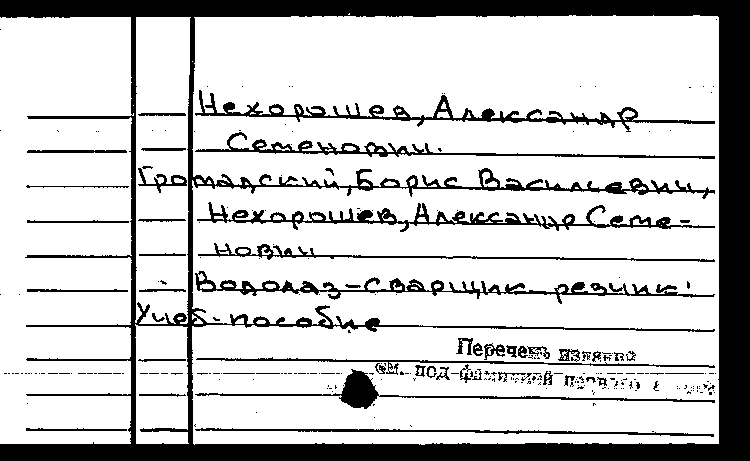 Нехорошев, Александр
Семенович.
Громадский, Борис Васильевич,
Нехорошев, Александр Семе-
нович.
Водолаз-сварщик-резчик:
Учеб. пособие
Перечень
см. под фамилией первого